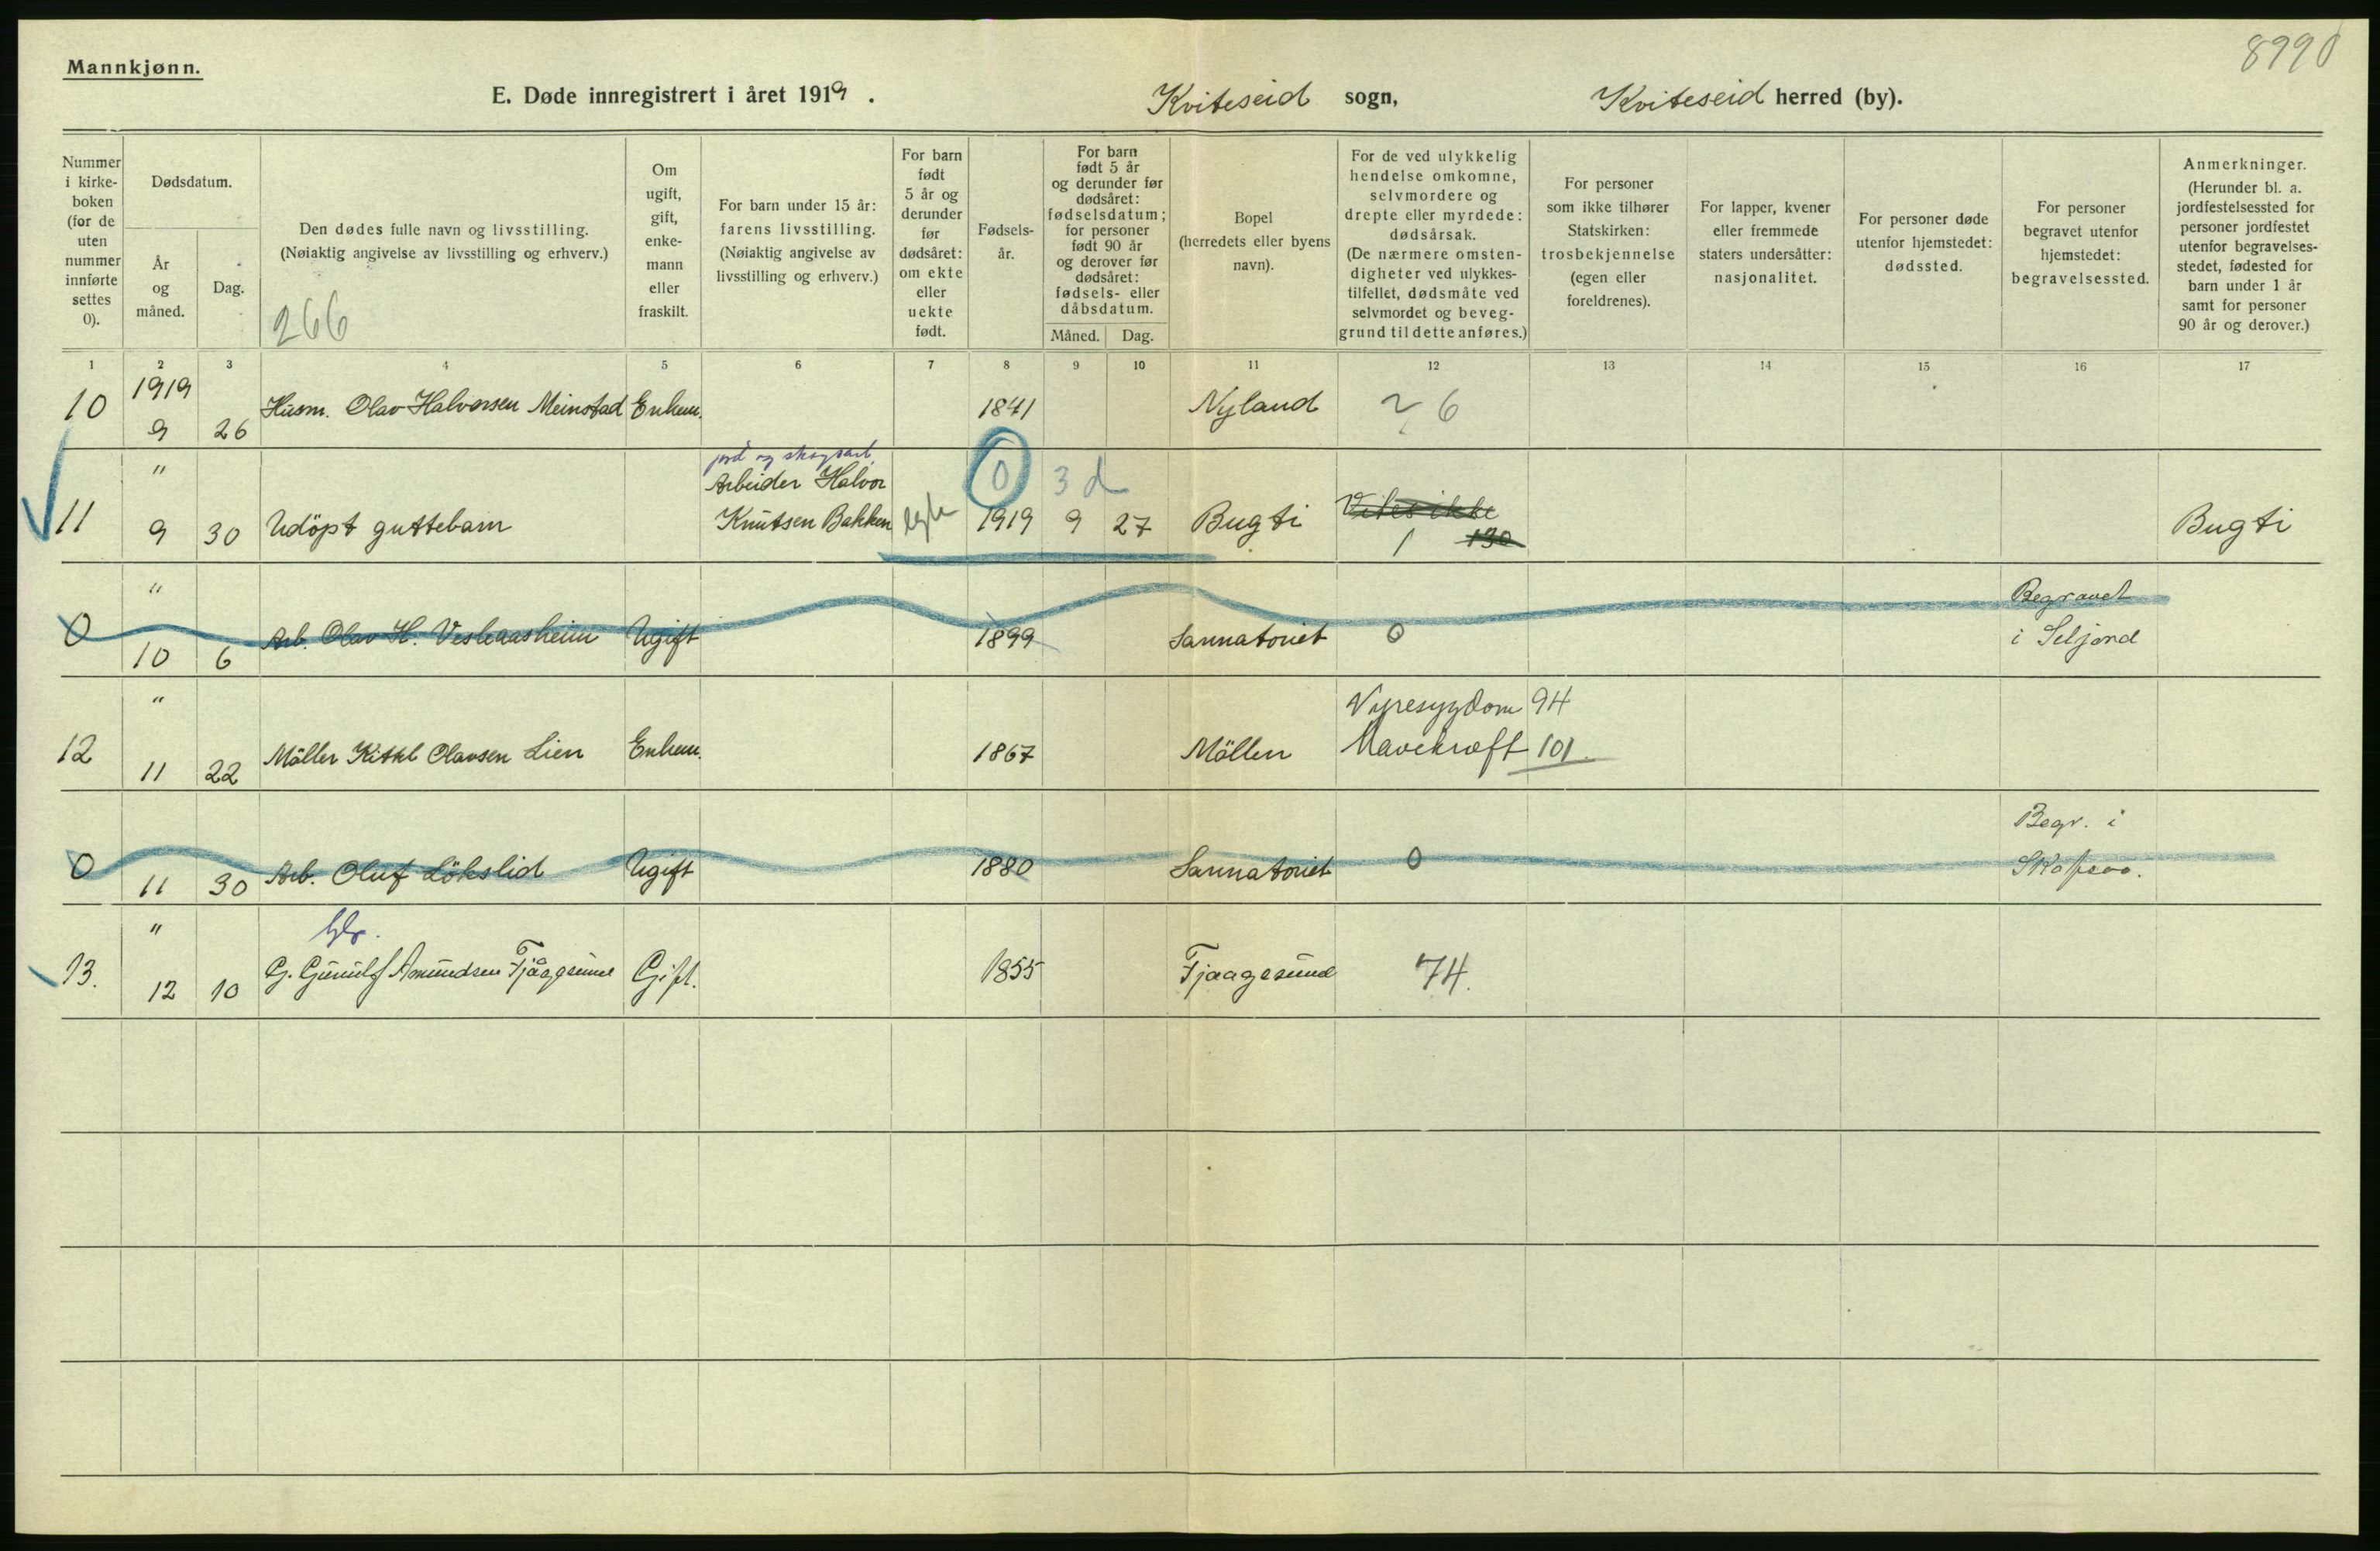 8990
Mannkjønn.
E. Døde innregistrert i året 1919 . Kviteseid sogn, Kviteseid herred (by).
Nummer i kirke- boken (for de uten nummer innførte settes 0).
Dødsdatum.
År og måned.
Dag.
Den dødes fulle navn og livsstilling.
(Nøiaktig angivelse av livsstilling og erhverv.)
266
Om ugift, gift, enke- mann eller fraskilt.
For barn under 15 år: farens livsstilling. (Nøiaktig angivelse av livsstilling og erhverv.)
For barn født 5 år og derunder før dødsåret: om ekte eller uekte født.
Fødsels- år.
For barn født 5 år og derunder før dødsåret: fødselsdatum; for personer født 90 år og derover før dødsåret: fødsels- eller dåbsdatum.
Måned. Dag.
Bopel (herredets eller byens navn).
For de ved ulykkelig hendelse omkomne, selvmordere og drepte eller myrdede: dødsårsak. (De nærmere omsten- digheter ved ulykkes- tilfellet, dødsmåte ved selvmordet og beveg- grund til dette anføres.)
For personer som ikke tilhører Statskirken: trosbekjennelse (egen eller foreldrenes).
For lapper, kvener eller fremmede staters undersåtter: nasjonalitet.
For personer døde utenfor hjemstedet: dødssted.
For personer begravet utenfor hjemstedet: begravelsessted.
Anmerkninger. (Herunder bl. a. jordfestelsessted for personer jordfestet utenfor begravelses- stedet, fødested for barn under 1 år samt for personer 90 år og derover.)
1 2 3 4 5 6 7 8 9 10 11 12 13 14 15 16 17
1919
10 9 26 Husm. Olav Halvorsen Meinstad Enkem. 1841 Nyland 26
" jord og skogsarb. 0 3 d
Arbeider Halvor Vites ikke
11 9 30 Udöpt guttebarn Knutsen Bakken egte 1919 9 27 Bugti 1 130 Bugti
" Begravet
0 10 6 Arb. Olav H. Veslaasheim Ugift 1899 Sannatoriet 0 i Seljord
" Nyresygdom 94
12 11 22 Möller Kittil Olavsen Lien Enkem. 1867 Möllen Mavekræft 101.
Begr. i
0 11 30 Arb. Oluf Lökslid Ugift 1880 Sannatoriet 0
"
13. 12 10 G. Gunulf Amundsen Fjågesund Gift. 1855 Fjaagesund 74.